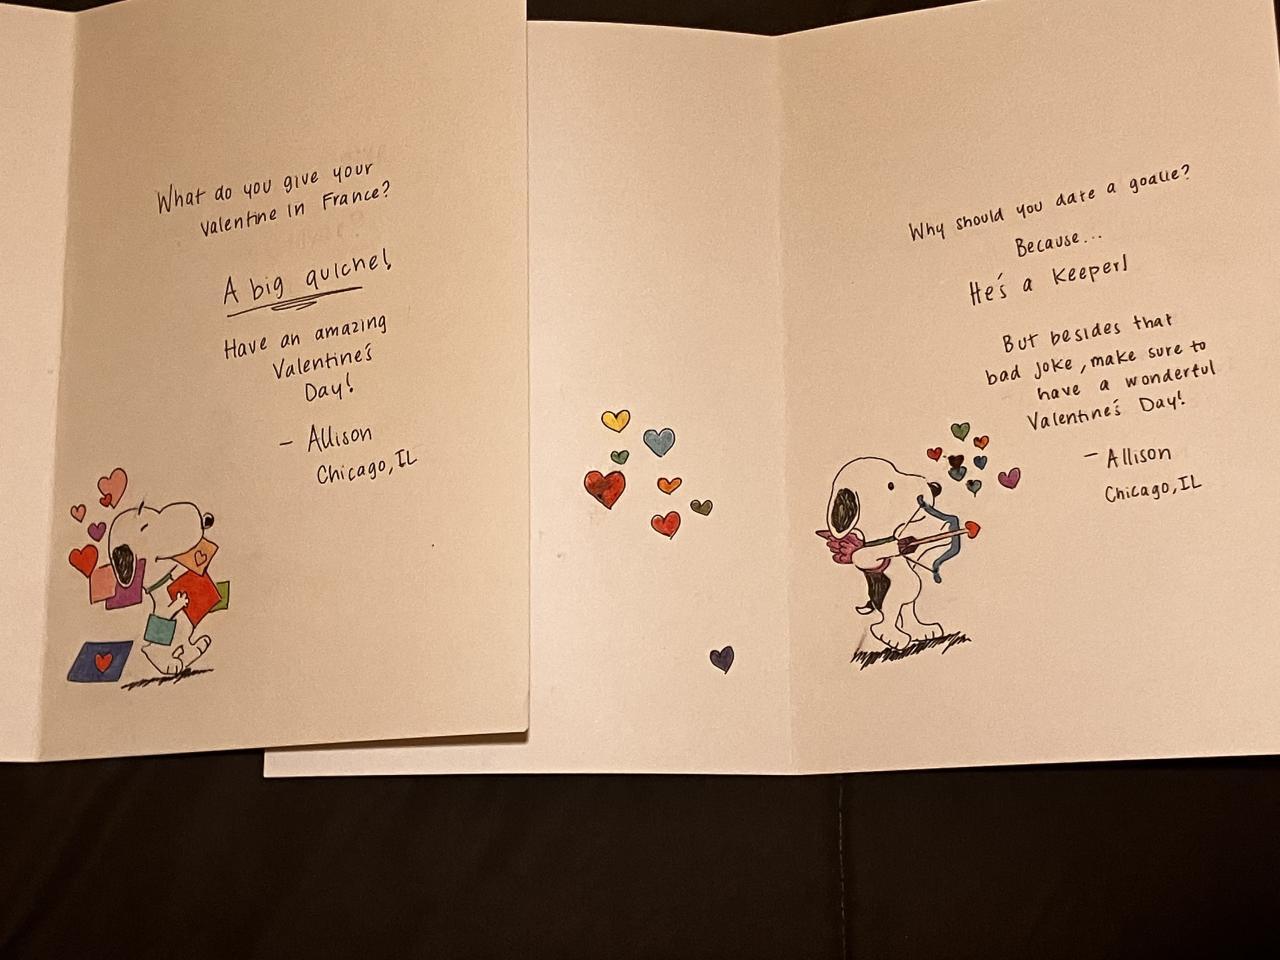 What do you give your
Valentine in France?
A big quiche!
Have an amazing
Valentine's
Day!
- Allison
Chicago, IL
Why should you date a goalie?
Because...
He's a Keeper!
But besides that
bad joke, make sure to
have a wonderful
Valentine's Day!
- Allison
Chicago, IL